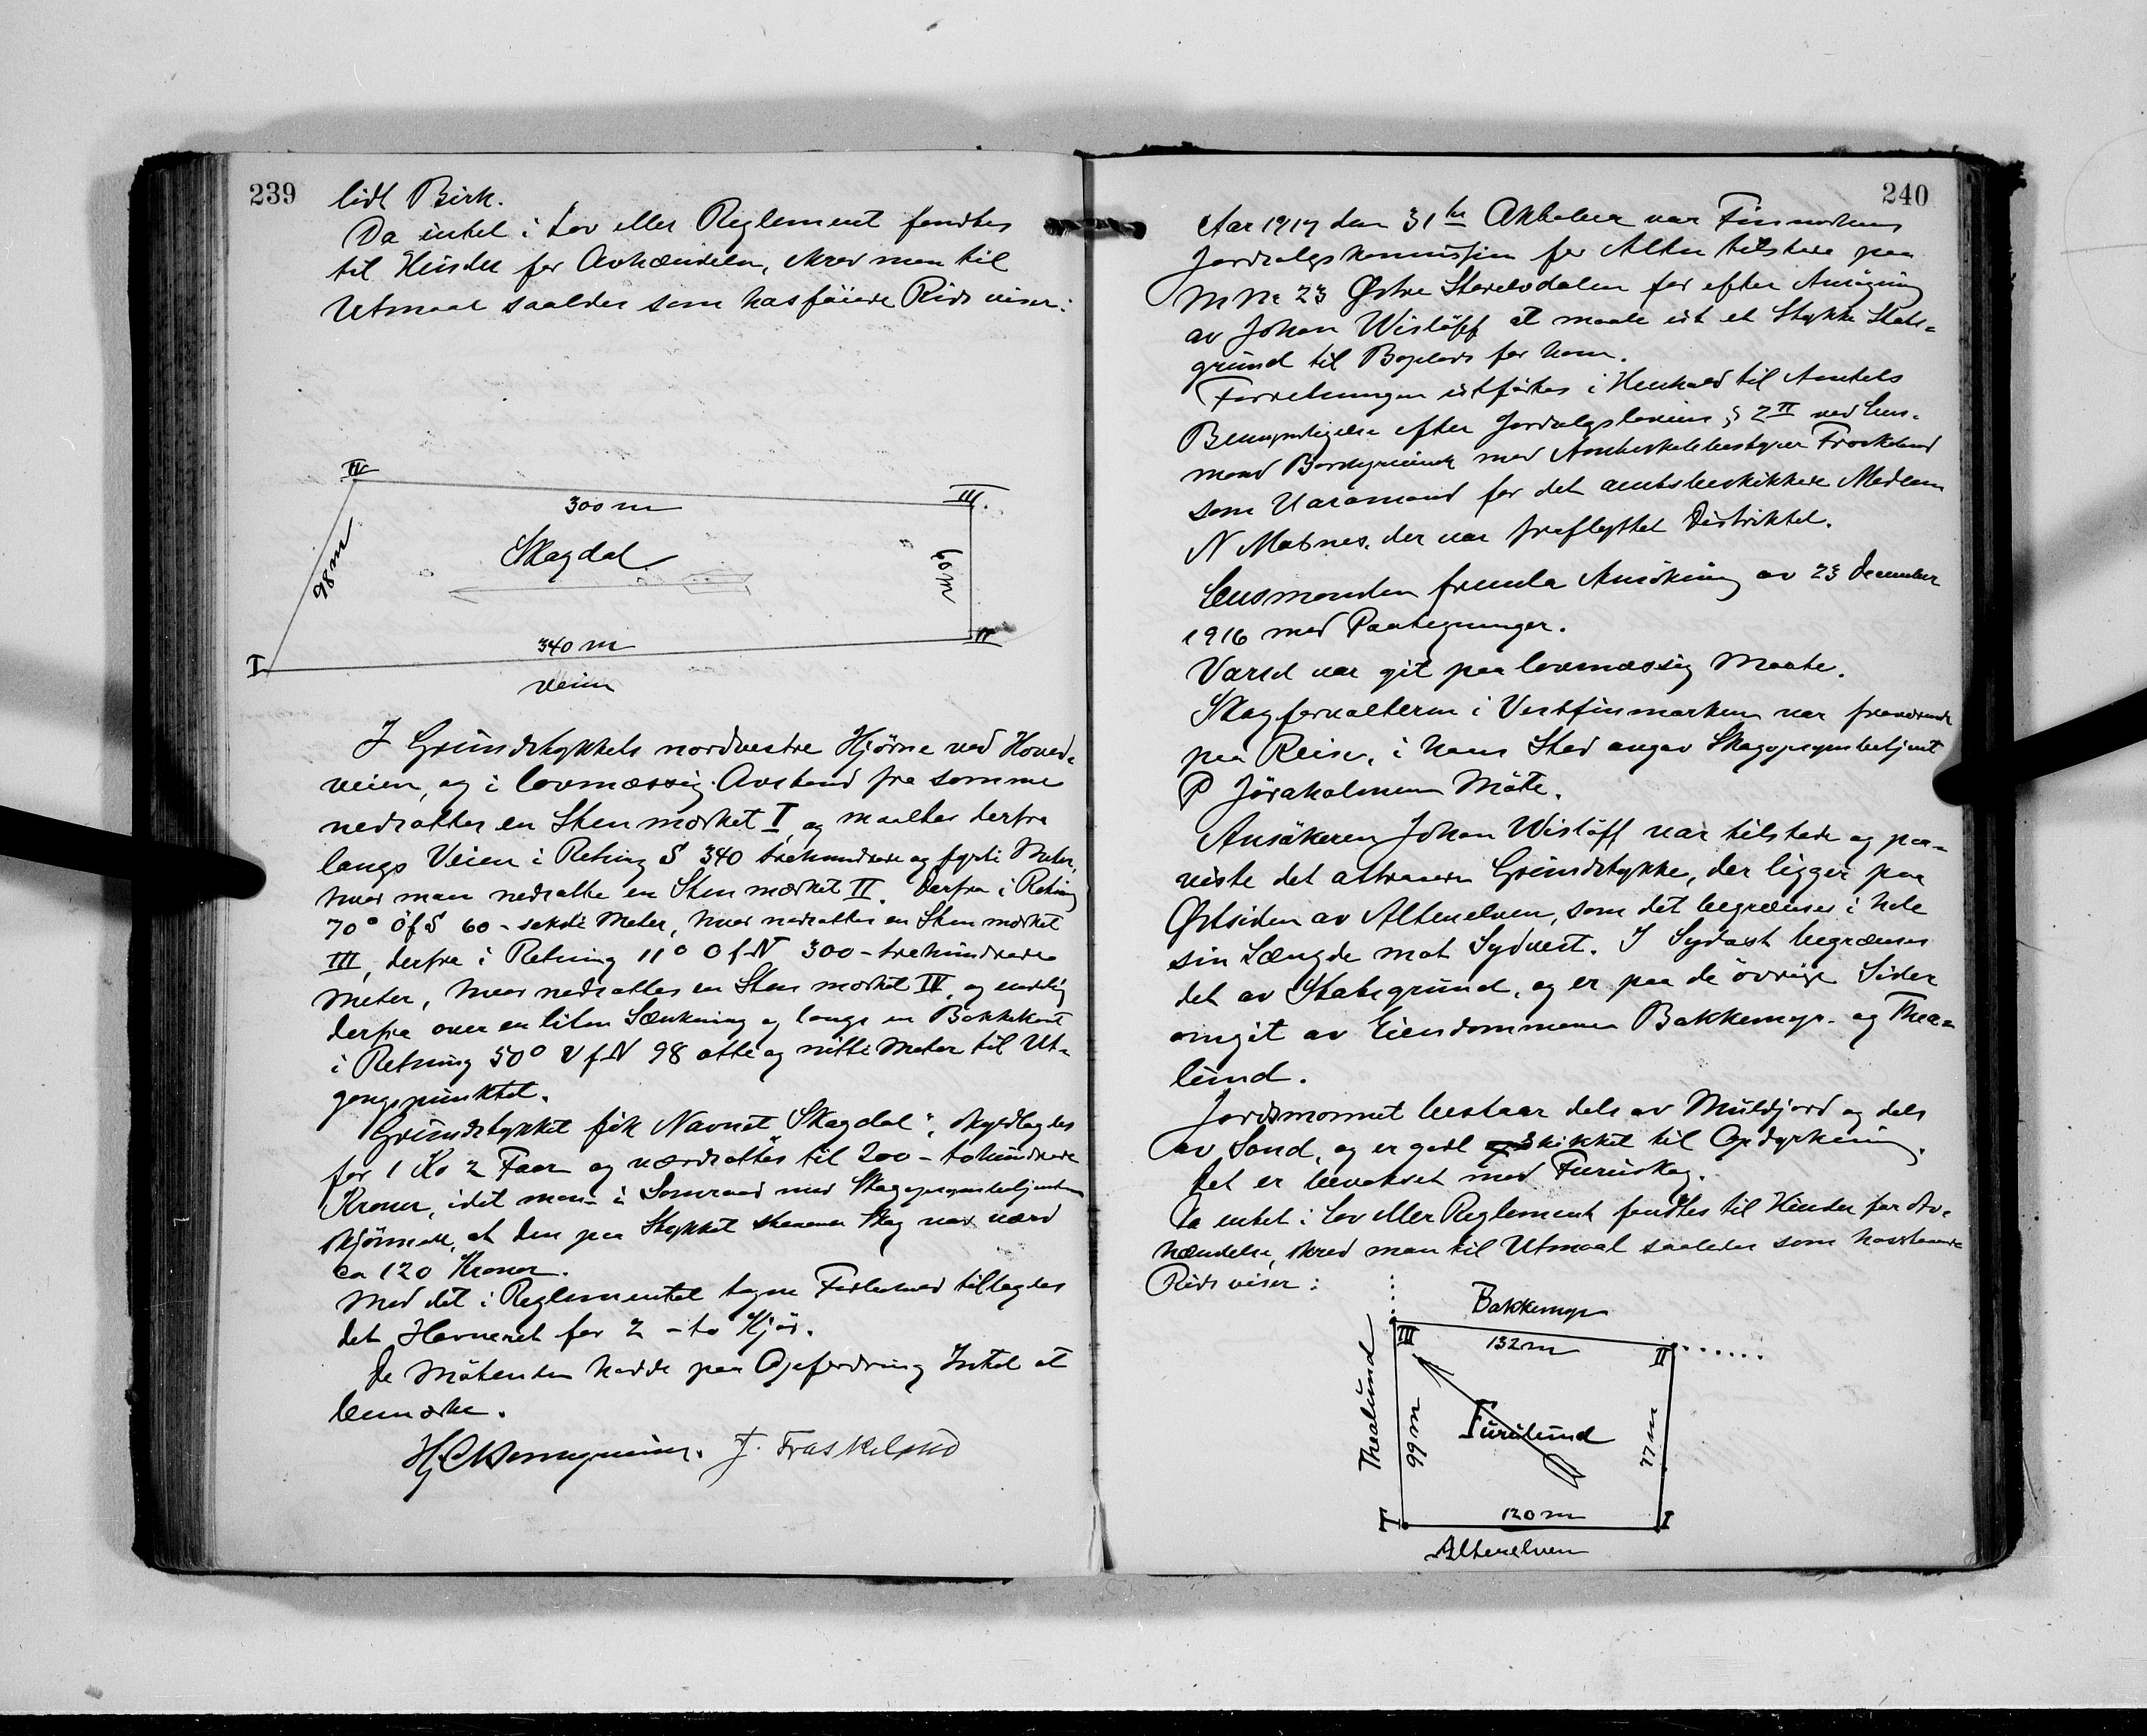 239
lidt Birk.
Da intet i Lov eller Reglement fandtes
til Hinder for Avhændelsen, skred man til
Utmaal saaledes som hosføiede Rids viser:
IV
III.
300 m
98 m
Skogdal
60 m
340 m
I
II
Veien
I Grundstykkets nordvestre Hjørne ved Hoved-
veien, og i lovmæssig Avstand fra samme
nedsattes en Sten merket I, og maaltes derfra
langs Veien i Retning S 340 trehundrede og førti Meter,
hvor man nedsatte en Sten mærket II. Derfra i Retning
70° Ø f S 60 - seksti Meter, hvor nedsattes en Sten mærket
III, derfra i Retning 11° O f N 300 - trehundrede
Meter, hvor nedsattes en Sten mærket IV, og endelig
derfra over en liten Sænkning og langs en Bakkekant
i Retning 50° V f N 98 otte og nitti Meter til Ut-
gangspunktet.
Grundstykket fik Navnet "Skogdal", skyldlagdes
for 1 Ko 2 Faar og værdsattes til 200 - tohundrede
Kroner, idet man i Samraad med Skogopsynsbetjenten
skjønnede, at den paa Stykket staaende Skog var værd
ca 120 Kroner.
Med det i Reglementet tagne Forbehold tillagdes
det Havneret for 2 - to Kjør.
De Mötende hadde paa Opfordring Intet at
bemerke.
J. Fraskelund
240
Aar 1917 den 31te Oktober var Finmarkens
Jordsalgskommission for Alten tilstede paa
M No 23 Østre Storelvdalen for efter Ansøgning
av Johan Wisløff at maale ut et Stykke Stats-
grund til Boplads for ham.
Forretningen utførtes i Henhold til Amtets
Bemyndigelse efter Jordsalgslovens § 2 II ved Lens-
mand med
som Varamand for det amtsbeskikkede Medlem
N Matnes, der var fraflyttet Distriktet.
Lensmanden fremla Ansökning av 23 December
1916 med Paategninger.
Varsel var git paa lovmæssig Maate.
Skogforvalteren i Vestfinmarken var fraværende
paa Reise, i hans Sted angav Skogopsynsbetjent
P Jöraholmen Möte.
Ansökeren Johan Wislöff var tilstede og paa-
viste det attraaede Grundstykke, der ligger paa
Østsiden av Altenelven, som det begrænses i hele
sin Længde mot Sydvest. I Sydøst begrænses
det av Statsgrund, og er paa de övrige Sider
omgit av Eiendommene Bakkemyr og Thea-
lund.
Jordsmonnet bestaar dels av Muldjord og dels
av Sand, og er godt skikket til Opdyrkning.
Det er bevokset med Furuskog.
Da intet i Lov eller Reglement fandtes til Hinder for Av-
hændelse, skred man til Utmaal saaledes som hosstaaende
Rids viser:
Bakkemyr
III
132 m
II
Thealund
99 m
Furulund
77 m
120 m
I
Altenelven